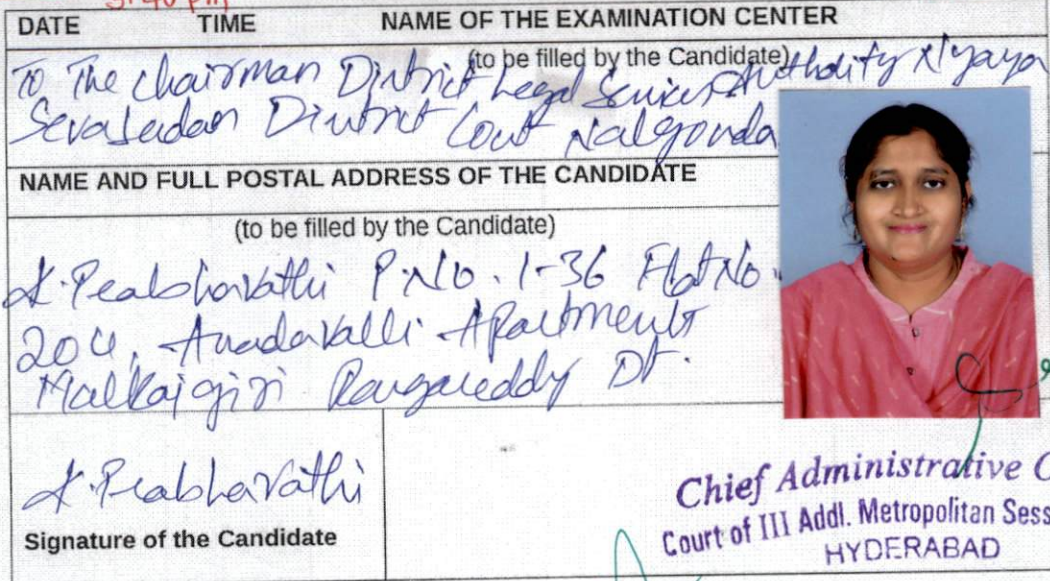 3:40 pm
DATE TIME NAME OF THE EXAMINATION CENTER
(to be filled by the Candidate)
To The Chairman District Legal Services Authority Nyaya
Sevasadan District Court Nalgonda
NAME AND FULL POSTAL ADDRESS OF THE CANDIDATE
(to be filled by the Candidate)
K. Prabhavathi P.No. 1-36 Flat No.
204, Anadavalli Apartment
Malkajgiri Rangareddy Dt.
K. Prabhavathi
Signature of the Candidate
Chief Administrative O
Court of III Addl. Metropolitan Sess
HYDERABAD